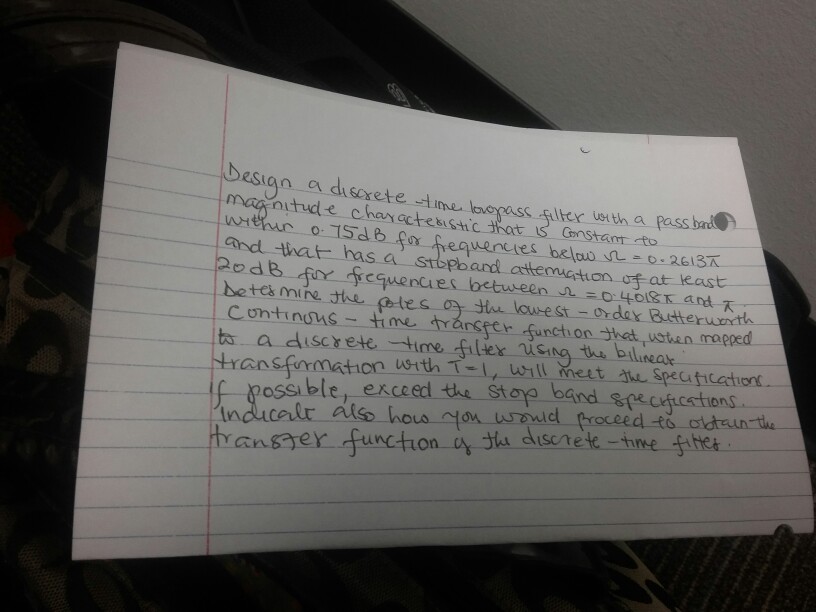 Design a discrete-time lowpass filter with a pass band
magnitude characteristic that is constant to
within 0.75dB for frequencies below Ω = 0.2613π
and that has a stopband attenuation of at least
20dB for frequencies between Ω = 0.4018π and π.
Determine the poles of the lowest-order Butterworth
Continous-time transfer function that, when mapped
to a discrete-time filter using the bilinear
transformation with T=1, will meet the specifications.
If possible, exceed the stop band specifications.
Indicate also how you would proceed to obtain the
transfer function of the discrete-time filter.